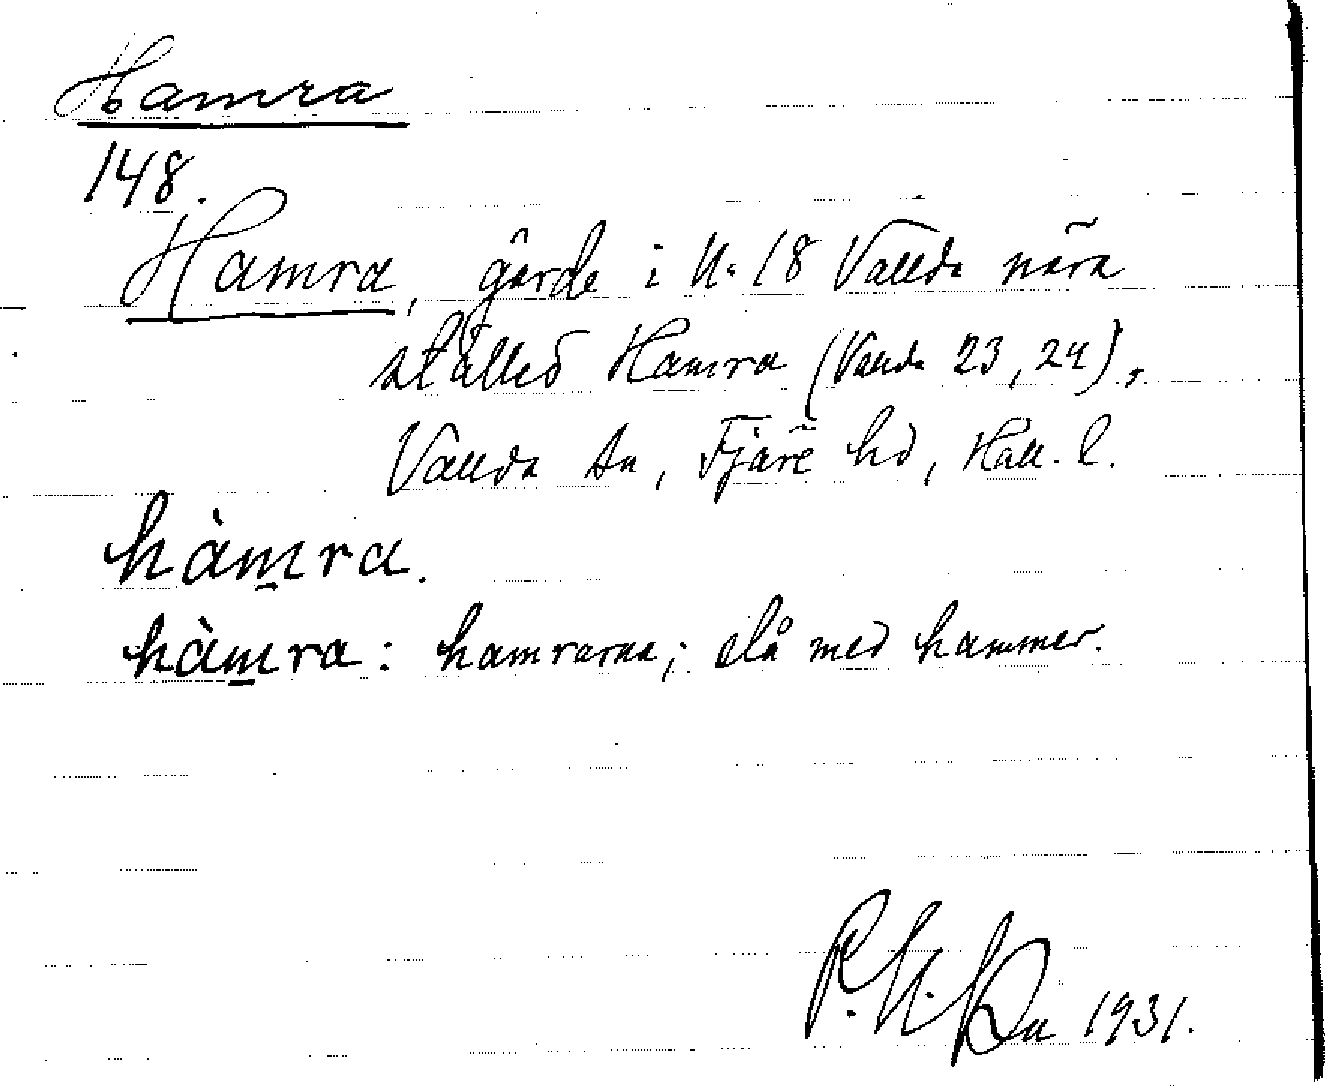 Hamra
148.
Hamra, gärde i N:18 Vallda nära
stället Hamra (Vallda 23, 24),
Vallda sn, Fjäre hd, Hall. l.
hàmra.
hàmra: hamrarna; slå med hammer.
P. N. 1931.